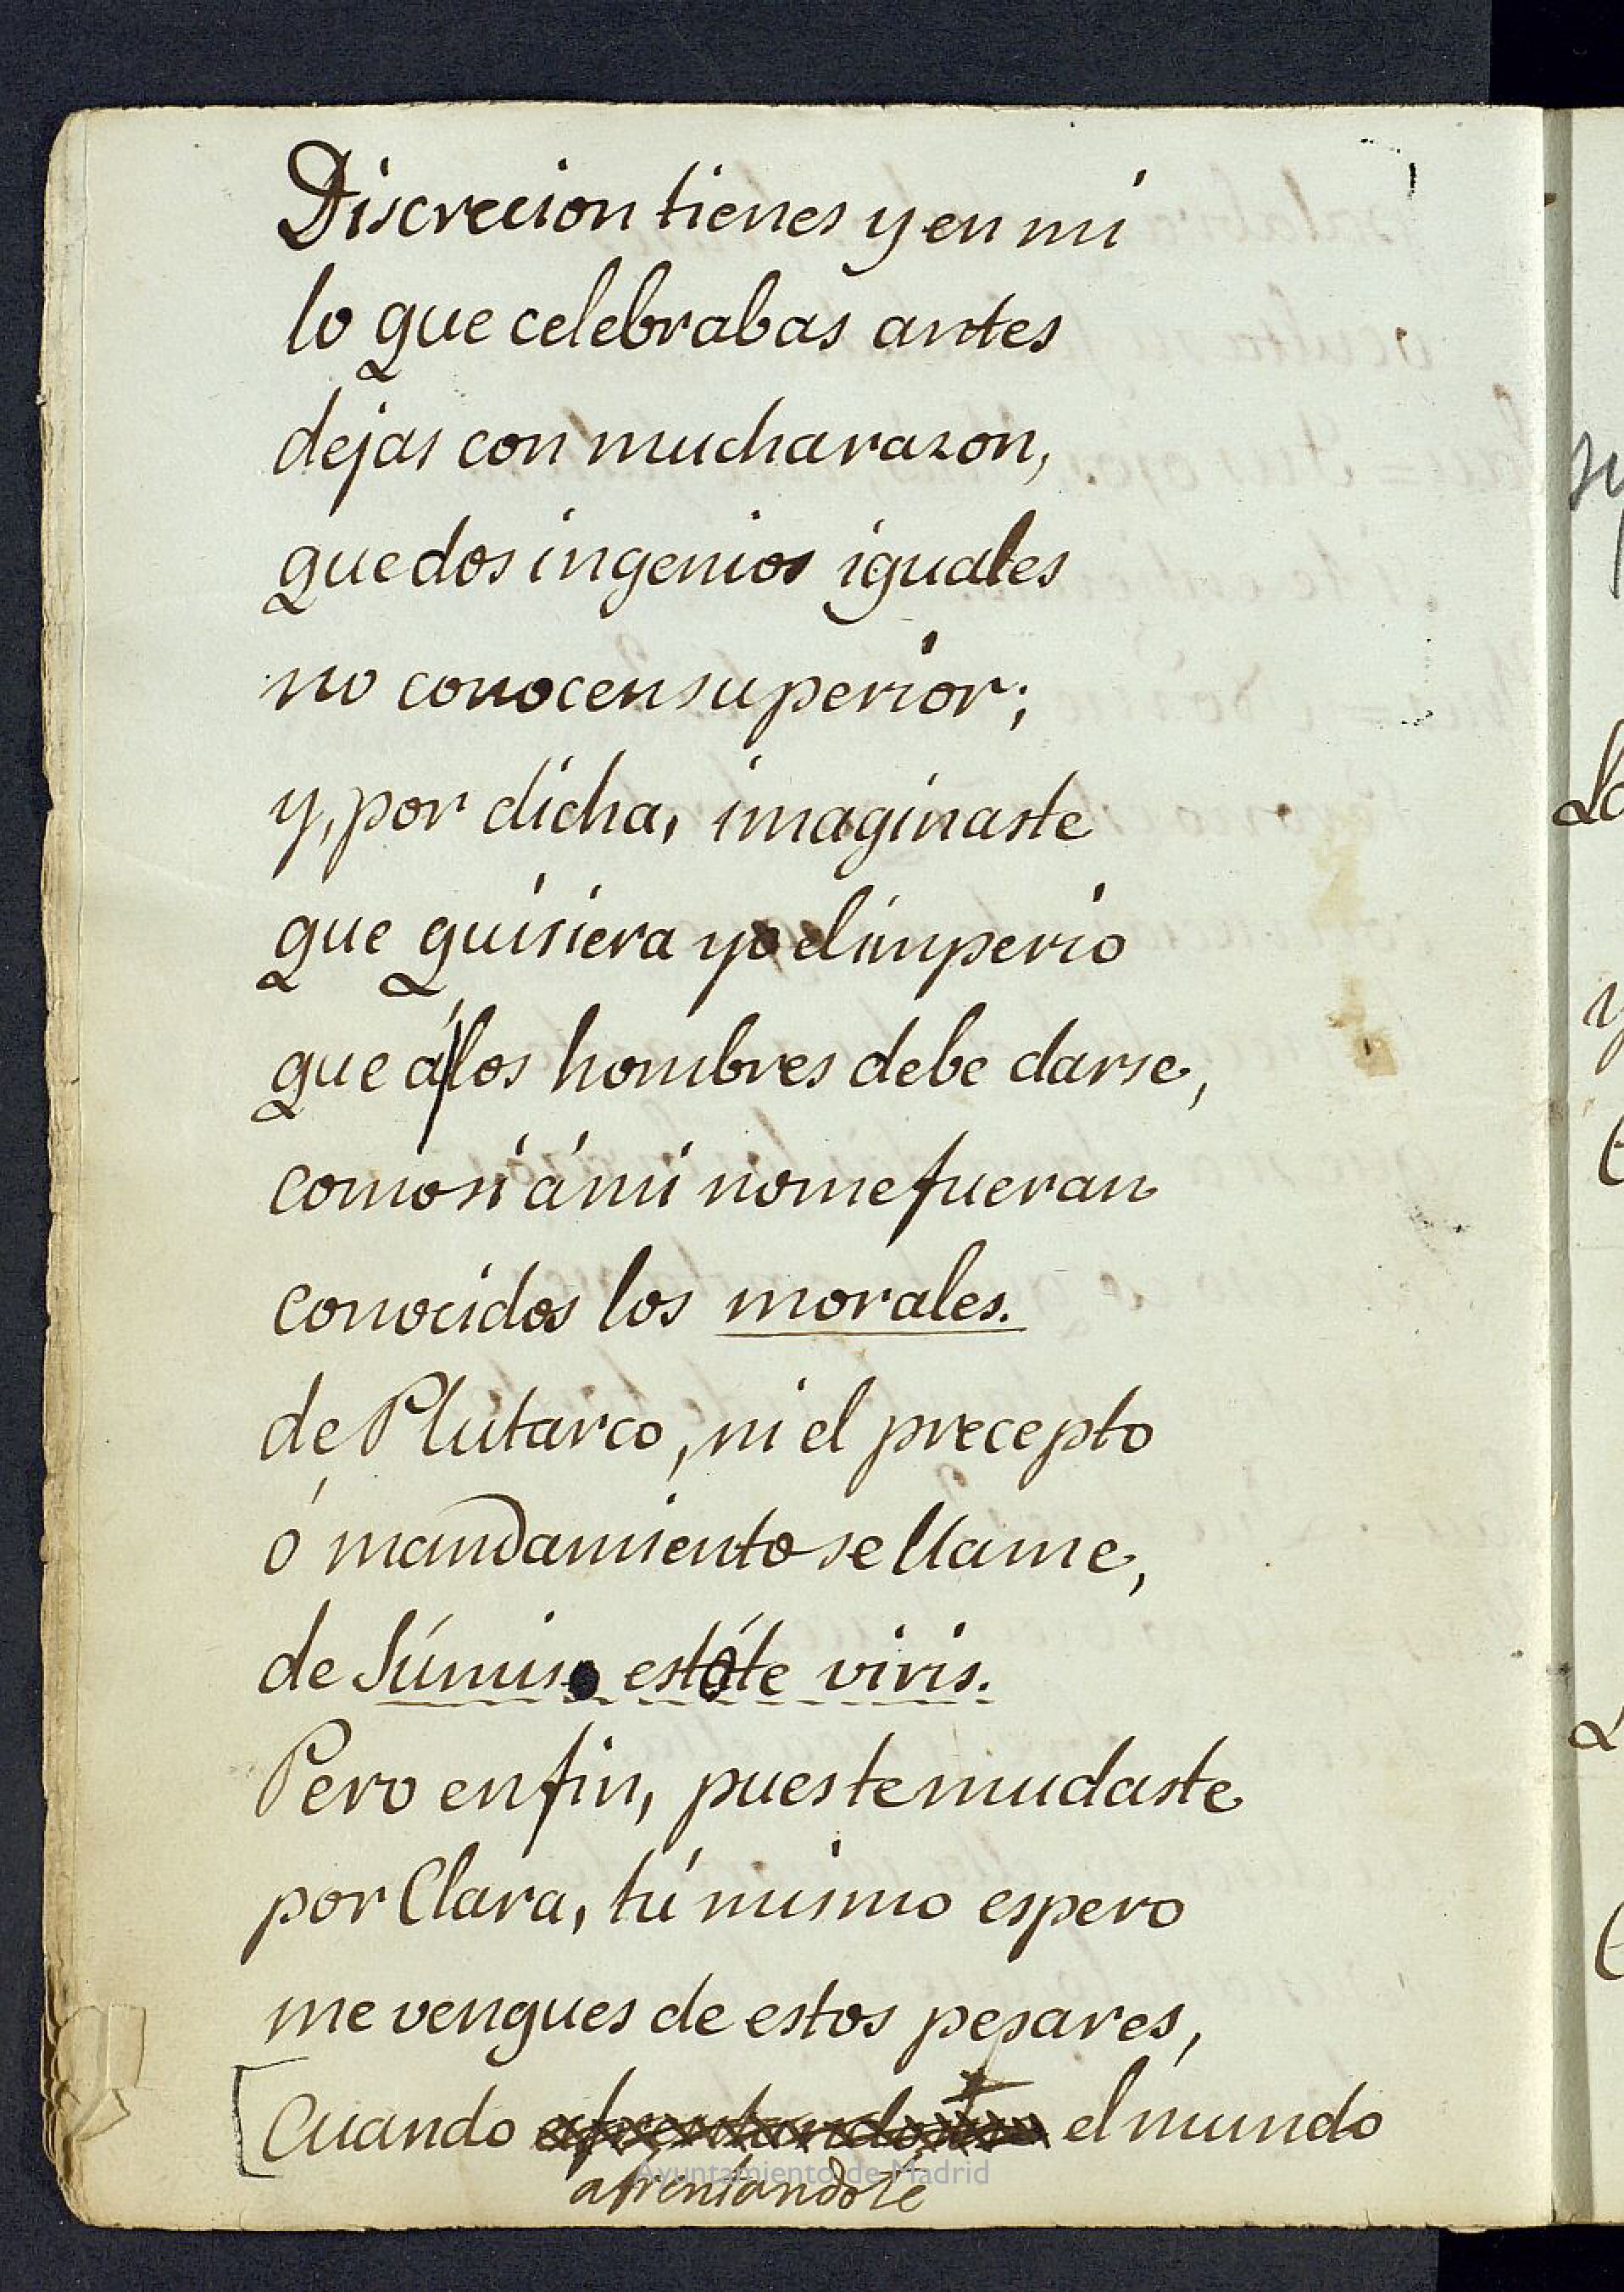 Discrecion tienes y en mi
lo que celebrabas antes
dejas con mucha razon,
que dos ingenios iguales
no conocen superior;
y, por dicha, imaginaste
que quisiera yo el imperio
que á los hombres debe darse,
como si á mi no me fueran
conocidos los morales.
de Plutarco, ni el precepto
ó mandamiento se llame,
de Súmiso estóte viris.
Pero en fin, pues te mudaste
por Clara, tú mismo espero
me vengues de estos pesares,
Cuando el mundo
afrentandote
Ayuntamiento de Madrid